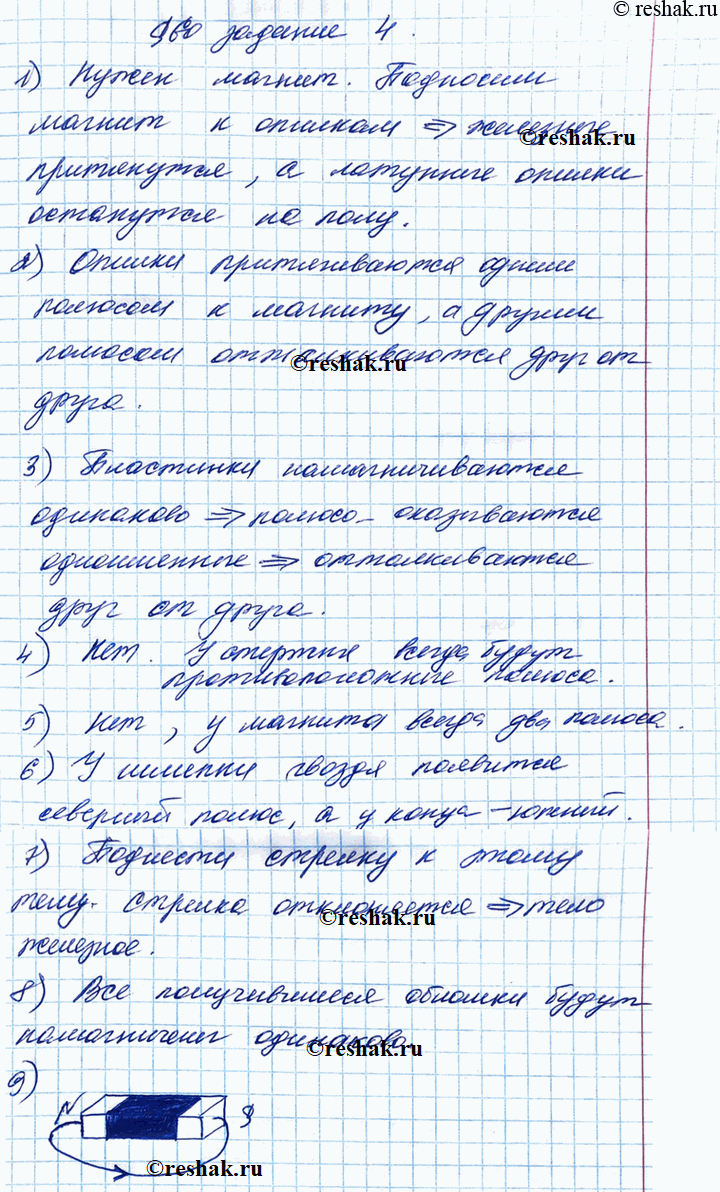 © reshak.ru
§60 задание 4.
1) Нужен магнит. Подносим
магнит к опилкам => железные
©reshak.ru
притянутся, а латунные опилки
останутся на полу.
2) Опилки притягиваются одним
полюсом к магниту, а другим
полюсом отталкиваются друг от
©reshak.ru
друга.
3) Пластинки намагничиваются
одинаково => полюса оказываются
одноименные => отталкиваются
друг от друга.
4) Нет. У стержня всегда будут
противоположные полюса.
5) Нет, у магнита всегда два полюса.
6) У шляпки гвоздя появится
северный полюс, а у конца - южный.
7) Поднести стрелку к этому
телу. Стрелка отклоняется => тело
©reshak.ru
железное.
8) Все получившиеся обломки будут
намагничены одинаково.
©reshak.ru
9)
N S
©reshak.ru